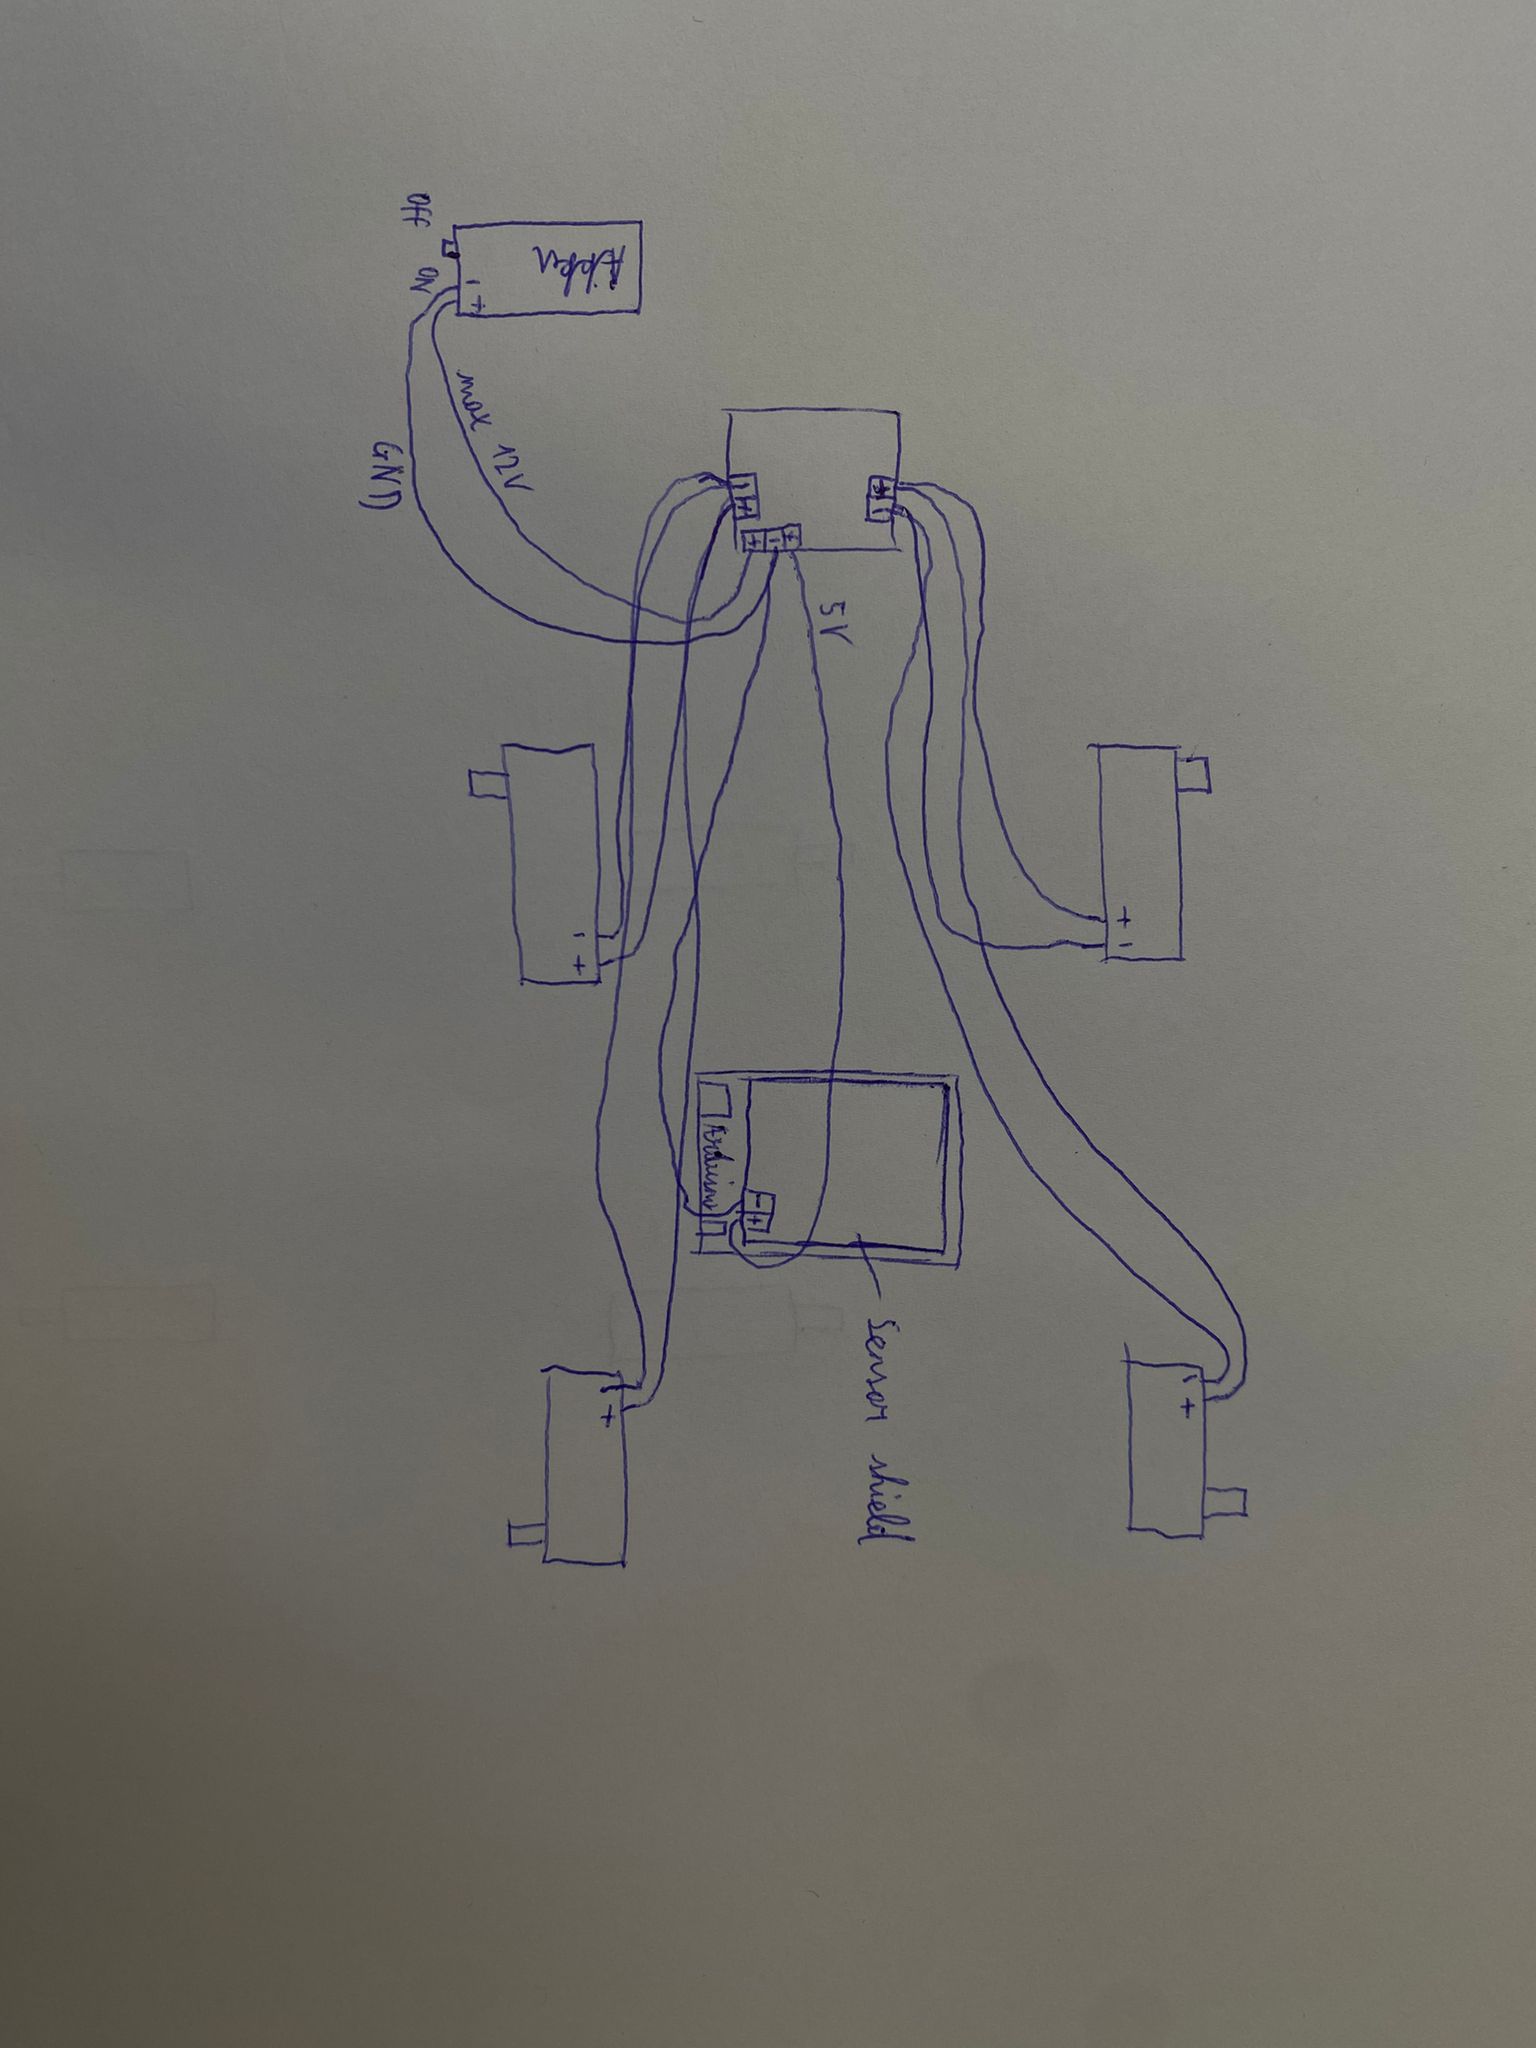 OFF
ON
Akku
- +
max 12V
GND
- +
+ -
+ - +
5V
- +
+ -
Arduino
- +
Sensor shield
- +
- +